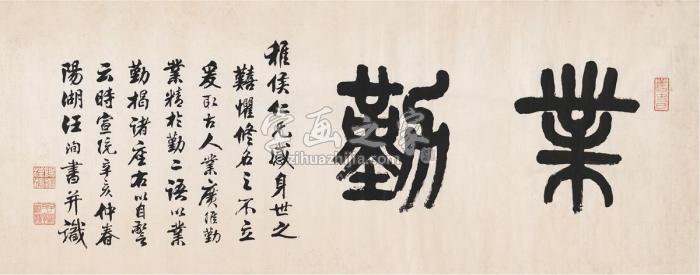 業勤
稚侯仁兄感身世之
囏懼修名之不立
爰取古人業廣惟勤
業精於勤二語以業
勤揭諸座右以自警
云時宣統辛亥仲春
陽湖汪洵書并識
字画之家
zihuazhijia.com